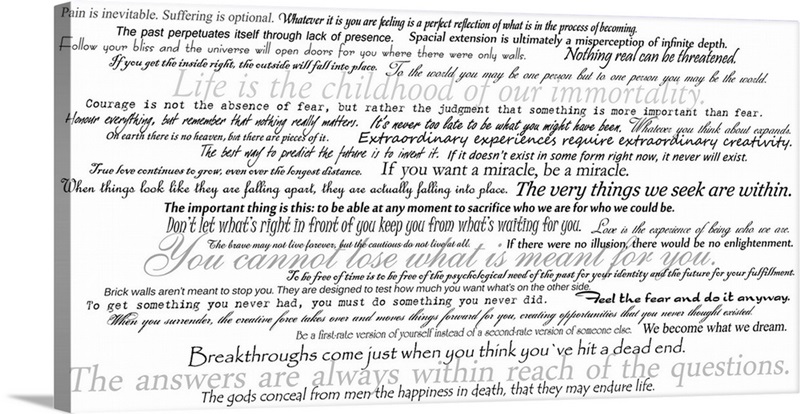 Pain is inevitable. Suffering is optional. Whatever it is you are feeling is a perfect reflection of what is in the process of becoming.
The past perpetuates itself through lack of presence. Spacial extension is ultimately a misperception of infinite depth.
Follow your bliss and the universe will open doors for you where there were only walls. Nothing real can be threatened.
If you get the inside right, the outside will fall into place. To the world you may be one person but to one person you may be the world.
Life is the childhood of our immortality.
Courage is not the absence of fear, but rather the judgment that something is more important than fear.
Honour everything, but remember that nothing really matters. It's never too late to be what you might have been. Whatever you think about expands.
On earth there is no heaven, but there are pieces of it. Extraordinary experiences require extraordinary creativity.
The best way to predict the future is to invent it. If it doesn't exist in some form right now, it never will exist.
True love continues to grow, even over the longest distance. If you want a miracle, be a miracle.
When things look like they are falling apart, they are actually falling into place. The very things we seek are within.
The important thing is this: to be able at any moment to sacrifice who we are for who we could be.
Don't let what's right in front of you keep you from what's waiting for you. Love is the experience of being who we are.
The brave may not live forever, but the cautious do not live at all. If there were no illusion, there would be no enlightenment.
You cannot lose what is meant for you.
To be free of time is to be free of the psychological need of the past for your identity and the future for your fulfillment.
Brick walls aren't meant to stop you. They are designed to test how much you want what's on the other side.
To get something you never had, you must do something you never did. Feel the fear and do it anyway.
When you surrender, the creative force takes over and moves things forward for you, creating opportunities that you never thought existed.
Be a first-rate version of yourself instead of a second-rate version of someone else. We become what we dream.
Breakthroughs come just when you think you`ve hit a dead end.
The answers are always within reach of the questions.
The gods conceal from men the happiness in death, that they may endure life.